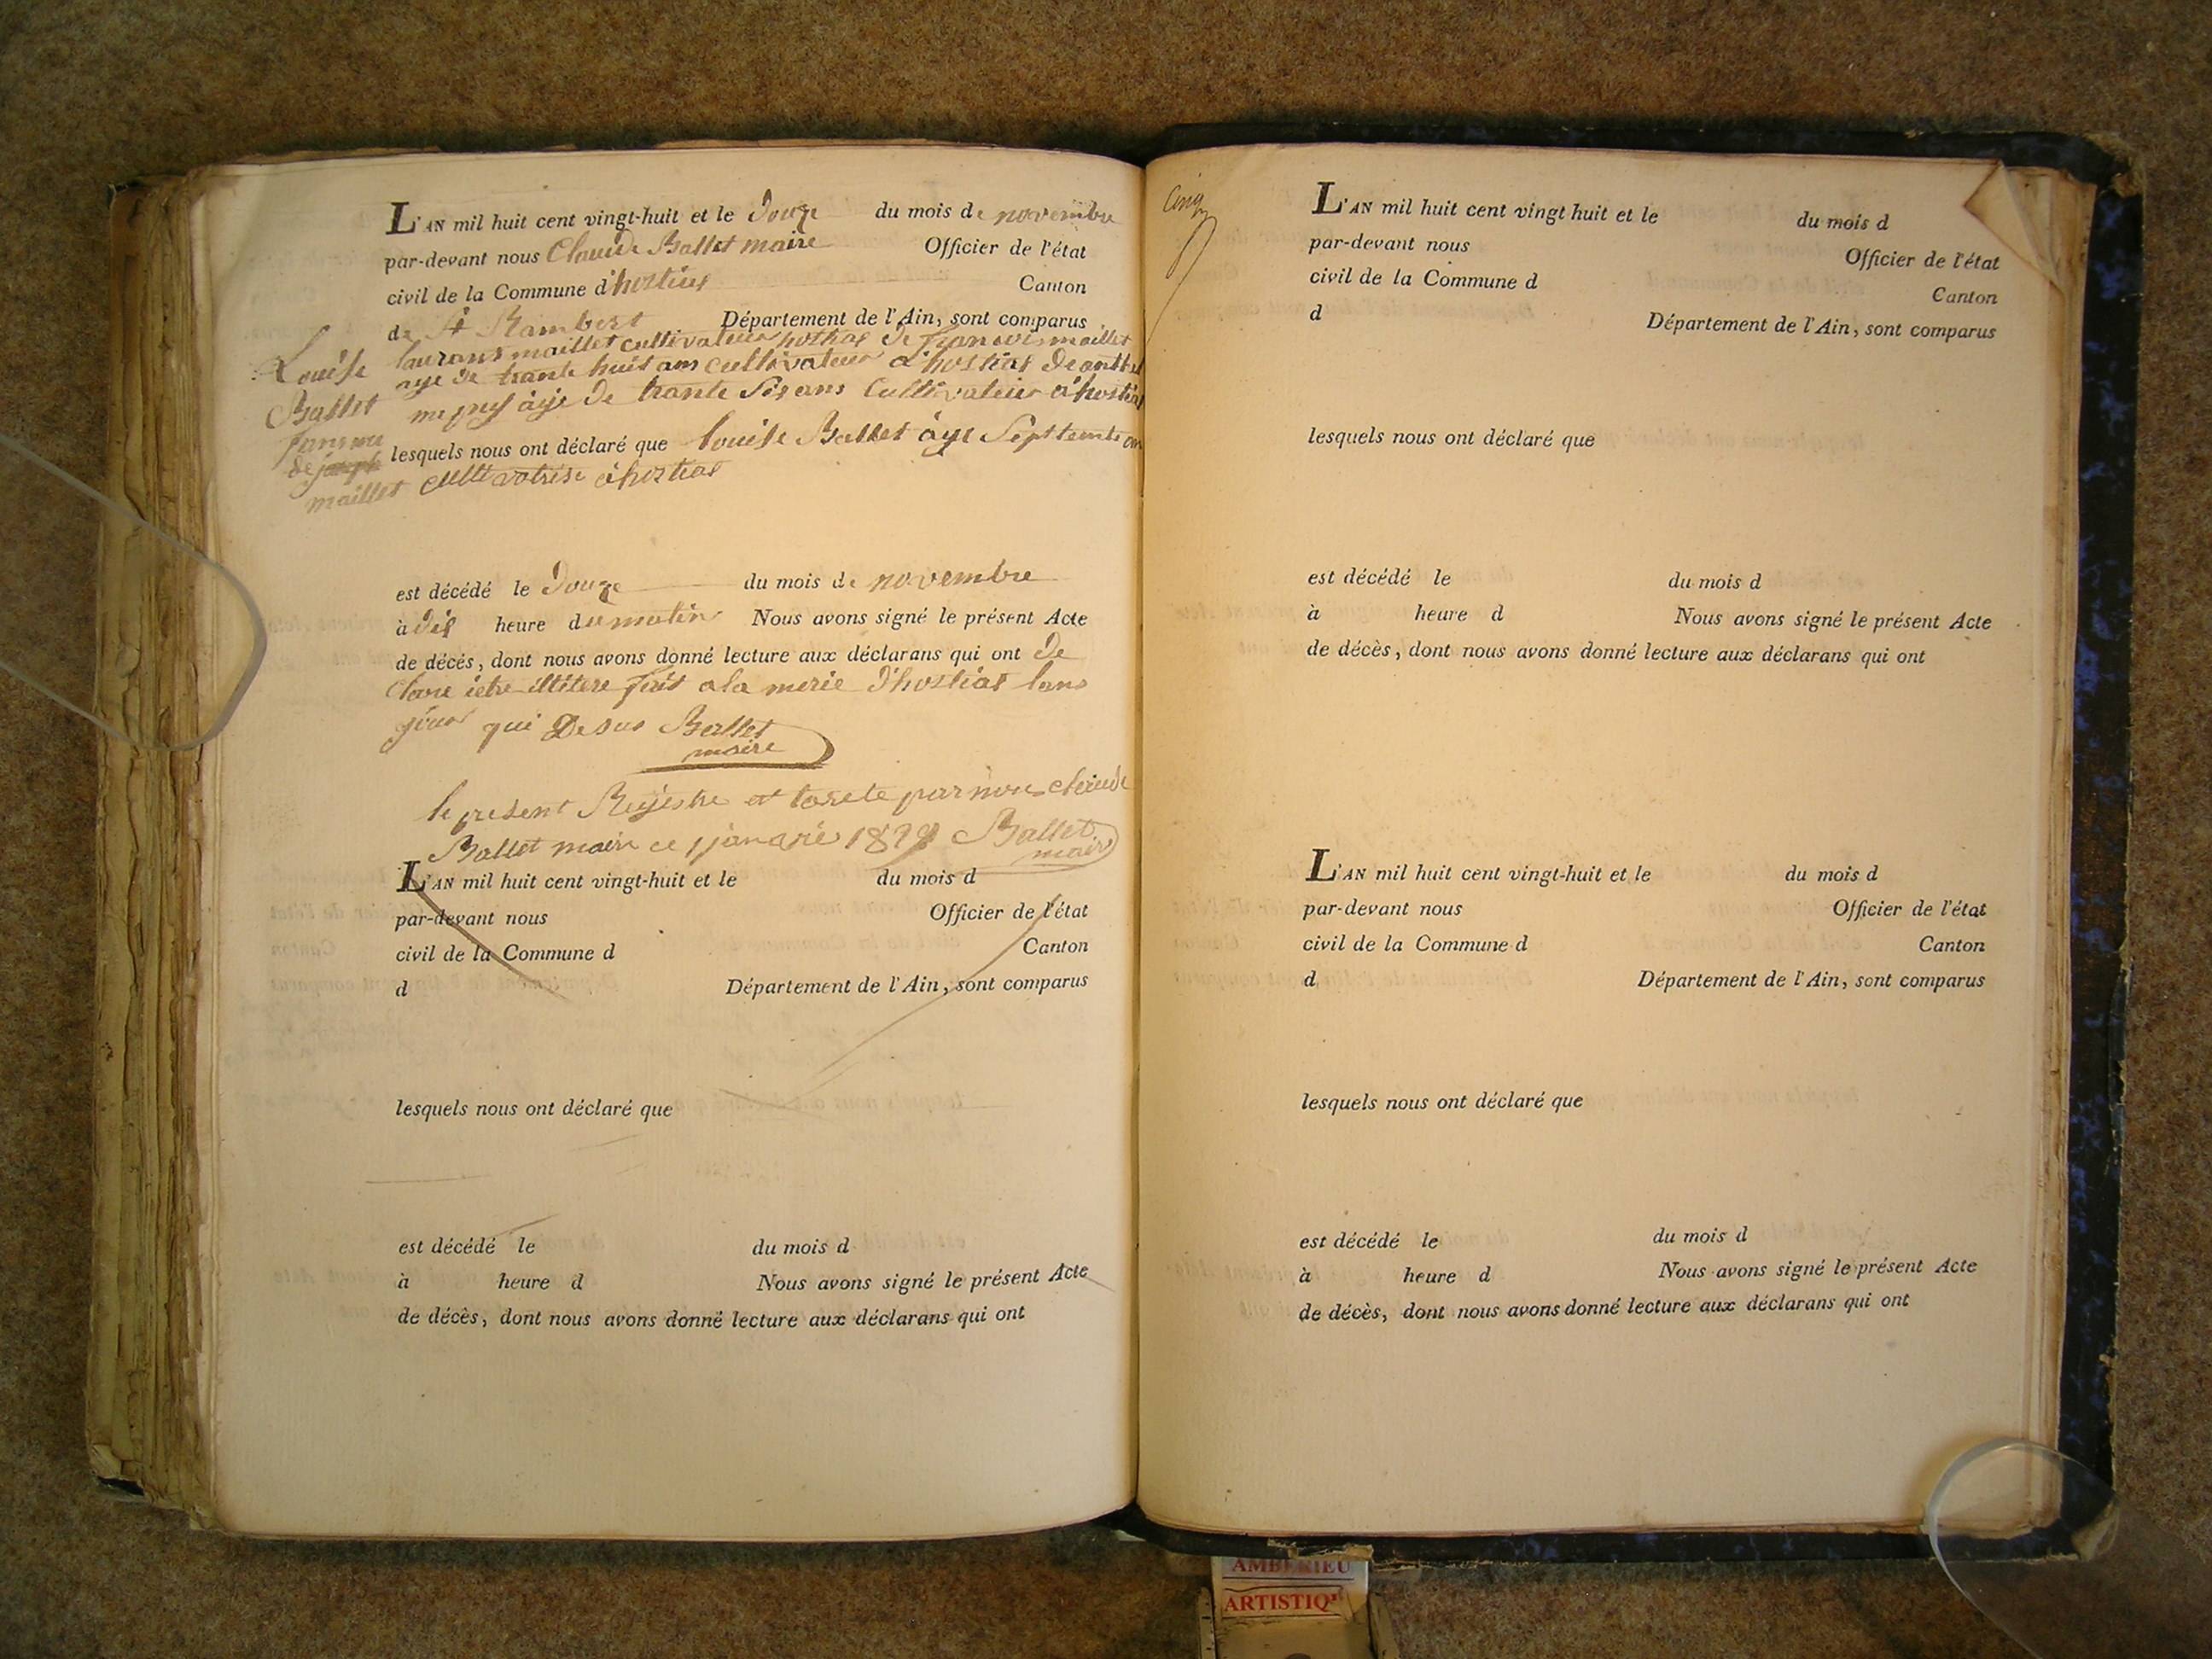 L'AN mil huit cent vingt-huit et le douze du mois de novembre
par-devant nous Claude Ballet maire Officier de l'état
civil de la Commune d'hostias Canton
de St Rambert Département de l'Ain, sont comparus
laurans maillet cultivateur hostias de francois maillet
aye de trante huit ans cultivateur a hostias
âije de trante Sis ans Cultivateur a hostias
Louise
Ballet
de joseph
maillet
lesquels nous ont déclaré que louise Ballet âye Septtente an
cultivatrise a hostias
est décédé le douze du mois de novembre
à dis heure du matin Nous avons signé le présent Acte
de décés, dont nous avons donné lecture aux déclarans qui ont de
clare ietre illitere fait a la merie d'hostias lans
jour qui Desus Ballet
maire
le present Rejistre et par nous claude
Ballet maire ce janvié Ballet
maire
L'AN mil huit cent vingt-huit et le du mois d
par-devant nous Officier de l'état
civil de la Commune d Canton
d Département de l'Ain, sont comparus
lesquels nous ont déclaré que
est décédé le du mois d
à heure d Nous avons signé le présent Acte
de décès, dont nous avons donné lecture aux déclarans qui ont
Cinq
L'AN mil huit cent vingt huit et le du mois d
par-devant nous Officier de l'état
civil de la Commune d Canton
d Département de l'Ain, sont comparus
lesquels nous ont déclaré que
est décédé le du mois d
à heure d Nous avons signé le présent Acte
de décès, dont nous avons donné lecture aux déclarans qui ont
L'AN mil huit cent vingt-huit et le du mois d
par-devant nous Officier de l'état
civil de la Commune d Canton
d Département de l'Ain, sont comparus
lesquels nous ont déclaré que
est décédé le du mois d
à heure d Nous avons signé le présent Acte
de décès, dont nous avons donné lecture aux déclarans qui ont
AMBERIEU
ARTISTIQ